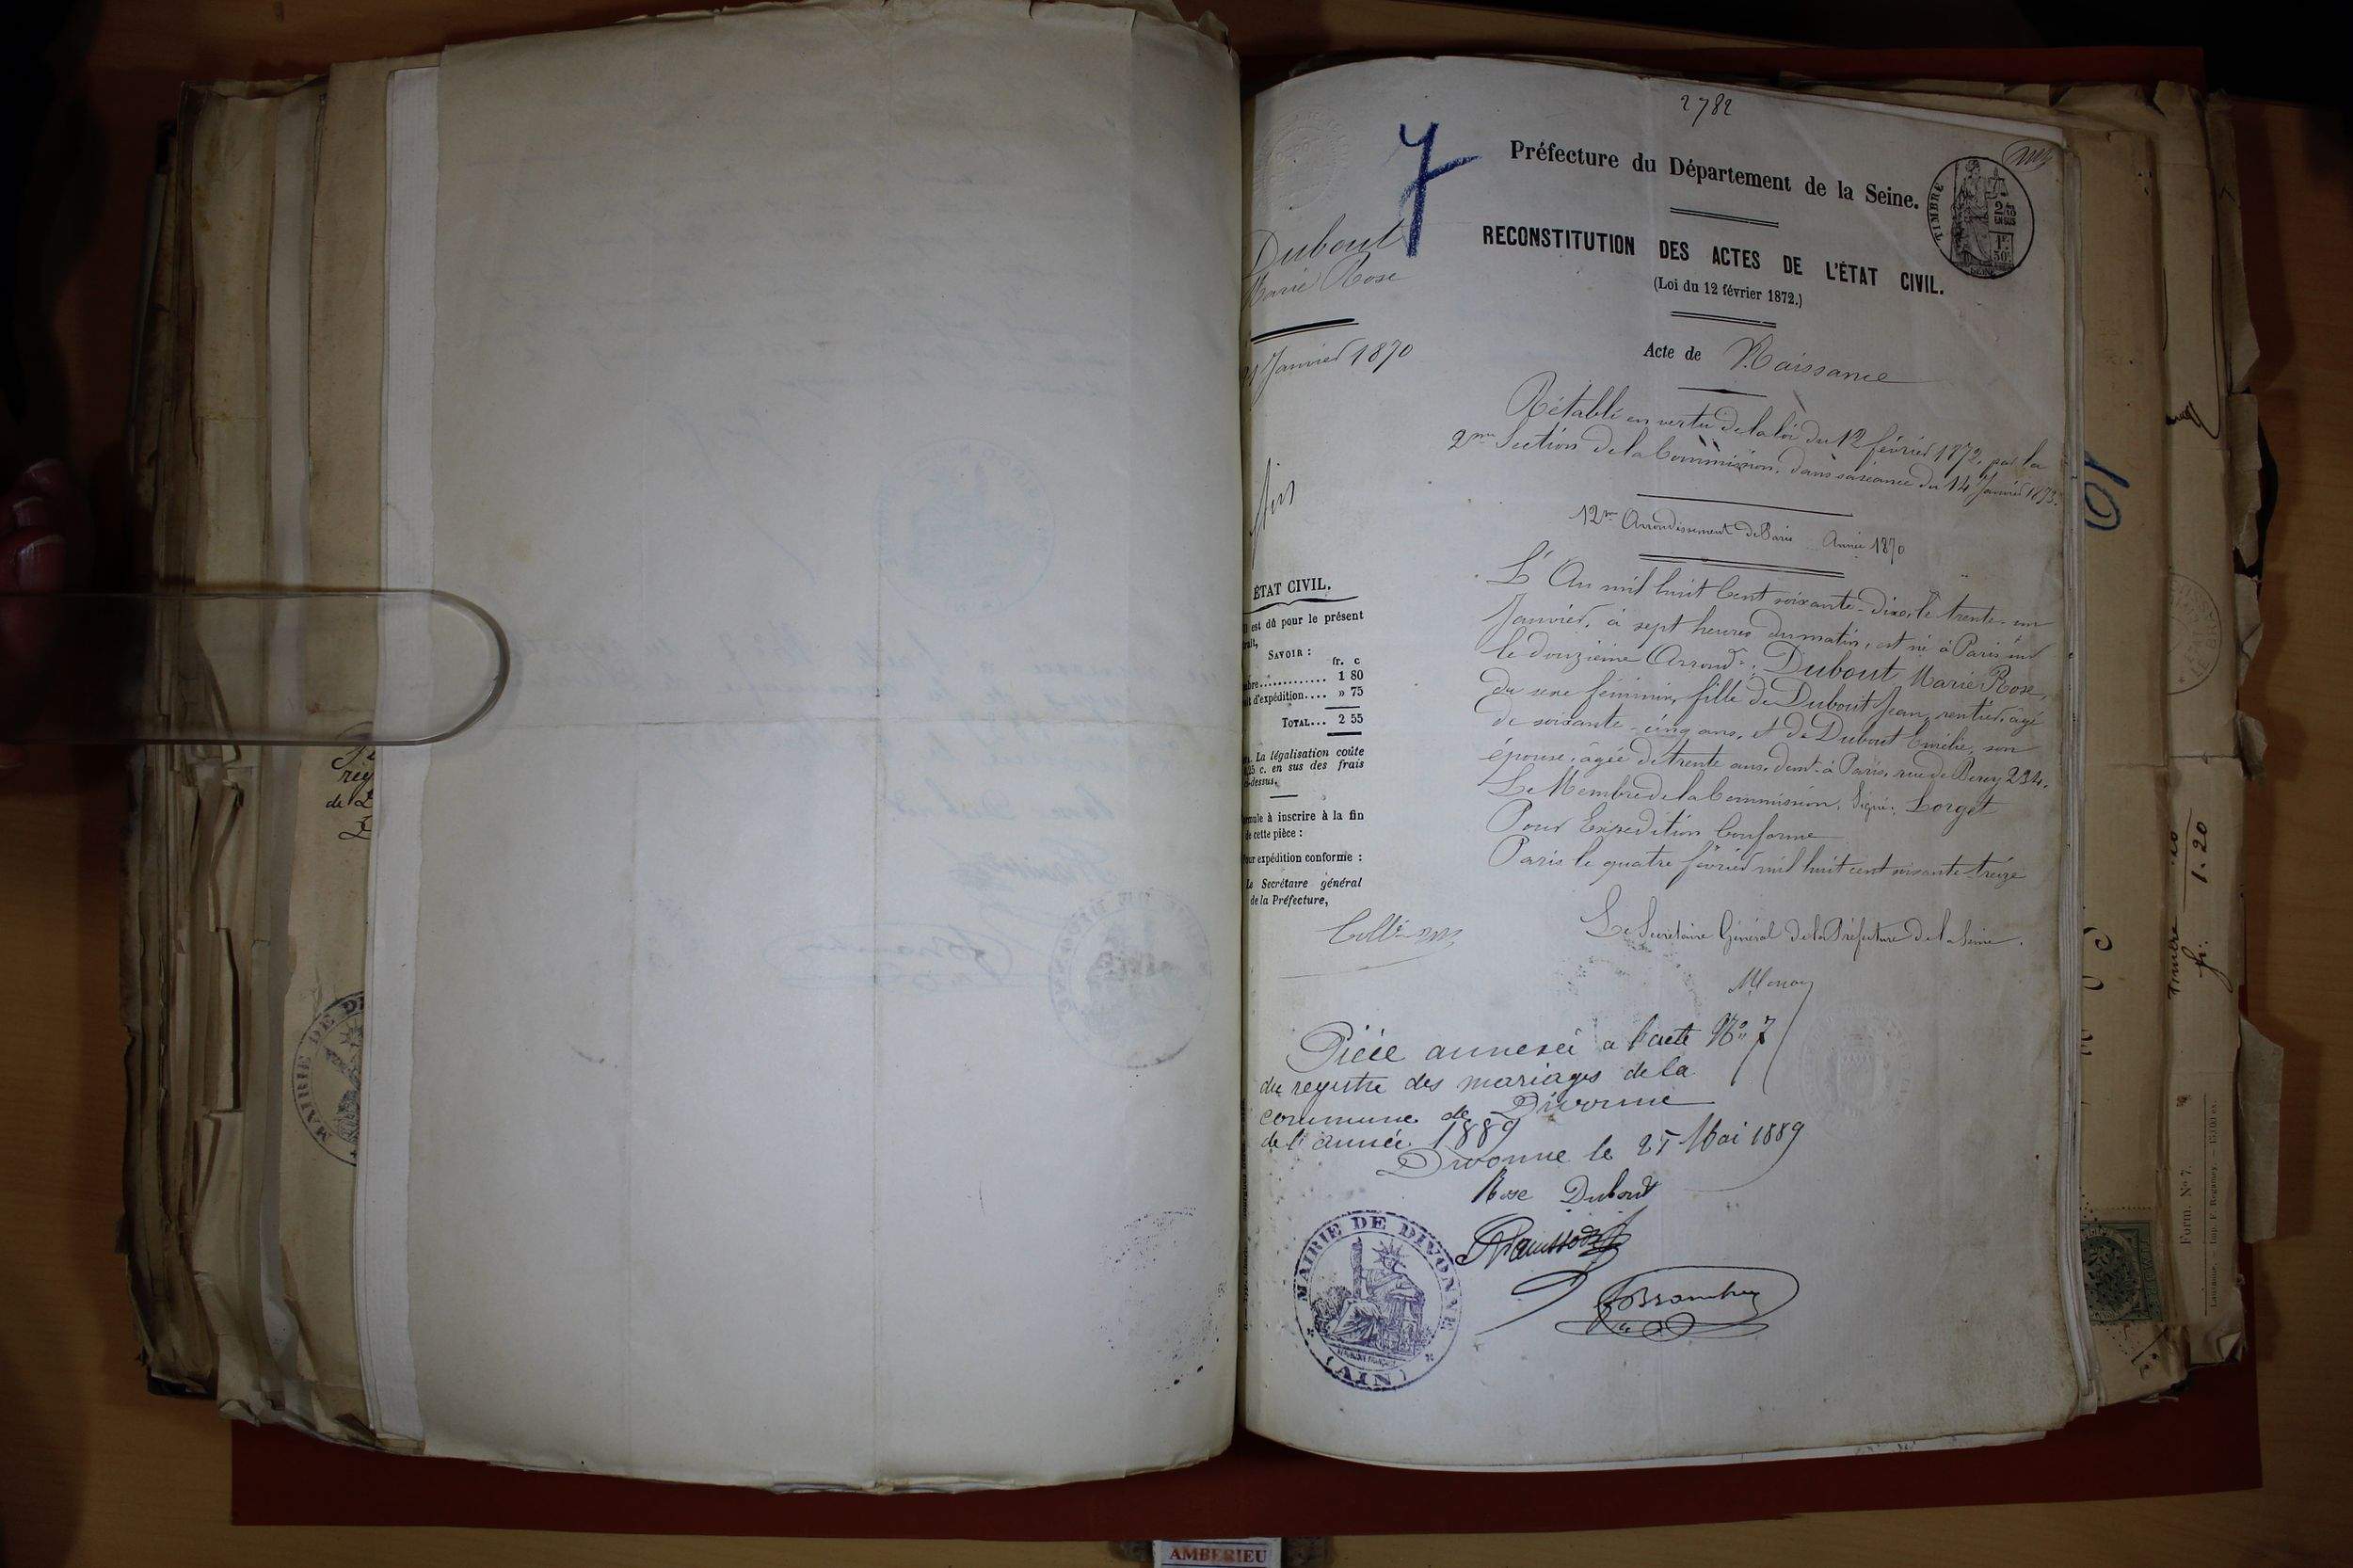 2782
7
Préfecture du Département de la Seine.
TIMBRE
RECONSTITUTION DES ACTES DE L'ÉTAT CIVIL.
(Loi du 12 février 1872.)
Dubout
Marie Rose
31 Janvier 1870
Acte de Naissance
Rétabli en vertu de la loi du 12 février 1872, par la
2me Section de la Commission, dans sa séance du 14 Janvier 1873.
12me Arrondissement de Paris Année 1870
L'An mil huit cent soixante-dix, le trente-un
Janvier, à sept heures du matin, est né à Paris en
le douzième Arrondt, Dubout Marie Rose,
du sexe féminin, fille de Dubout Jean, rentier, âgé
de soixante-cinq ans, et de Dubout Emélie, son
épouse, âgée de trente ans, demt à Paris, rue de Bercy 234.
Le Membre de la Commission, Signé: Lorget
Pour Expédition Conforme
Paris le quatre février mil huit cent soixante-treize
Le Secrétaire Général de la Préfecture de la Seine.
ÉTAT CIVIL.
Il est dû pour le présent
SAVOIR :
fr. c
1 80
d'expédition.... » 75
TOTAL... 2 55
La légalisation coûte
25 c. en sus des frais
ci-dessus.
à inscrire à la fin
de cette pièce :
Pour expédition conforme :
Le Secrétaire général
de la Préfecture,
Pièce annexée a l'acte No 7
du registre des mariages de la
commune de Divonne
de l'année 1889
Divonne le 25 Mai 1889
Rose Dubout
MAIRIE DE DIVONNE
(AIN)
MAIRIE DE DI
1.20
Form. No 7.
AMBERIEU